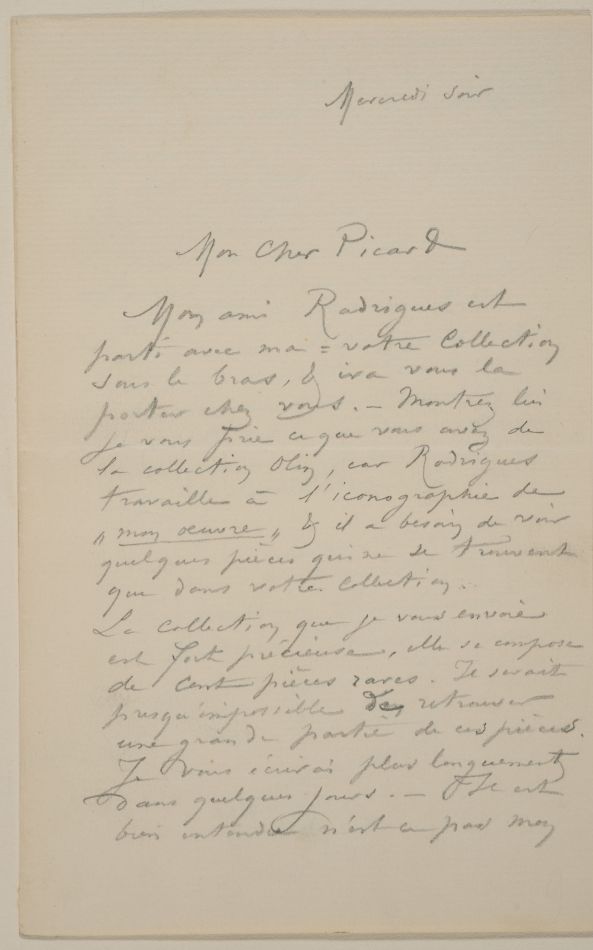 Mercredi soir
Mon Cher Picard
Mon ami Rodrigues est
parti avec ma = votre Collection
sous le bras, & ira vous la
porter chez vous. — Montrez lui
je vous prie ce que vous avez de
la collection Olin, car Rodrigues
travaille à l'iconographie de
„ mon oeuvre „ & il a besoin de voir
quelques pièces qui ne se trouvent
que dans votre Collection.
La Collection que je vous envoie
est fort précieuse, elle se compose
de Cent pièces rares. Il serait
presqu'impossible de retrouver
une grande partie de ces pièces.
Je vous écrirai plus longuement
dans quelques jours. — Il est
bien entendu n'est ce pas mon